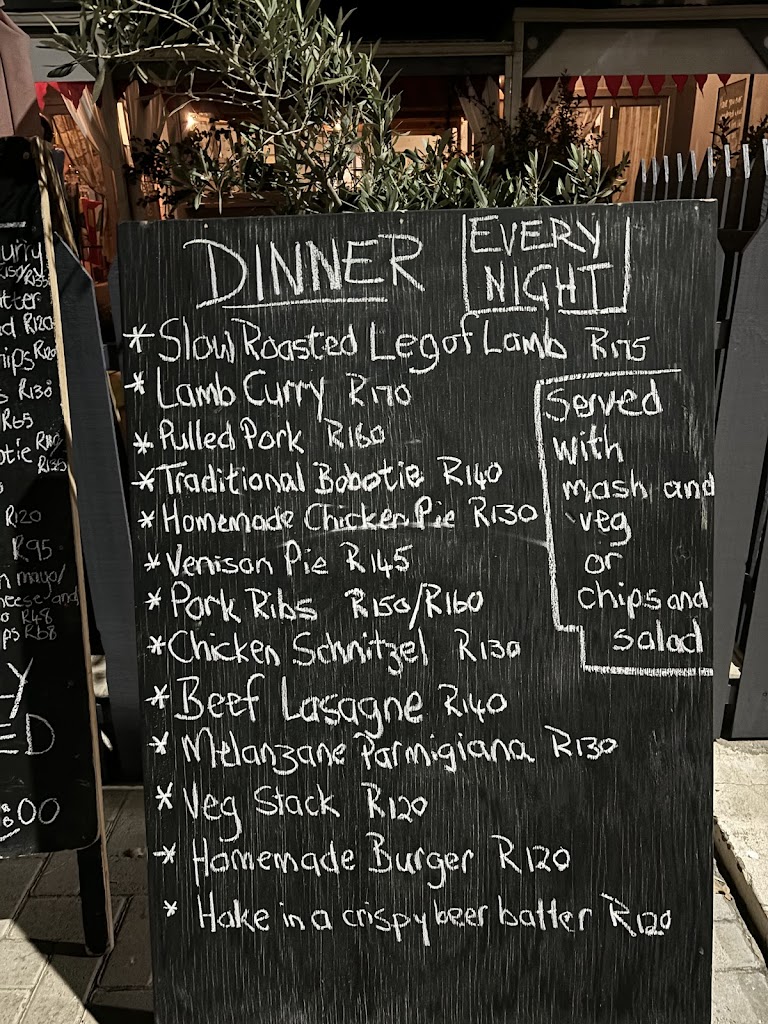 DINNER EVERY NIGHT
* Slow Roasted Leg of Lamb R175
* Lamb Curry R170
* Pulled Pork R160
* Traditional Bobotie R140
* Homemade Chicken Pie R130
* Venison Pie R145
* Pork Ribs R150/R160
* Chicken Schnitzel R130
* Beef Lasagne R140
* Melanzane Parmigiana R130
* Veg Stack R120
* Homemade Burger R120
* Hake in a crispy beer batter R120
Served
with
mash and
veg
or
chips and
salad
urry
tter
R120
R130
R65
R120
R95
mayo/
and
R48
R68
Y
ED
:00